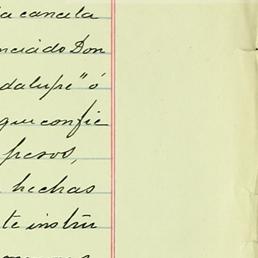 la cancela
nciado Don
dalupe" ó
que confie
pesos,
hechas
te instru